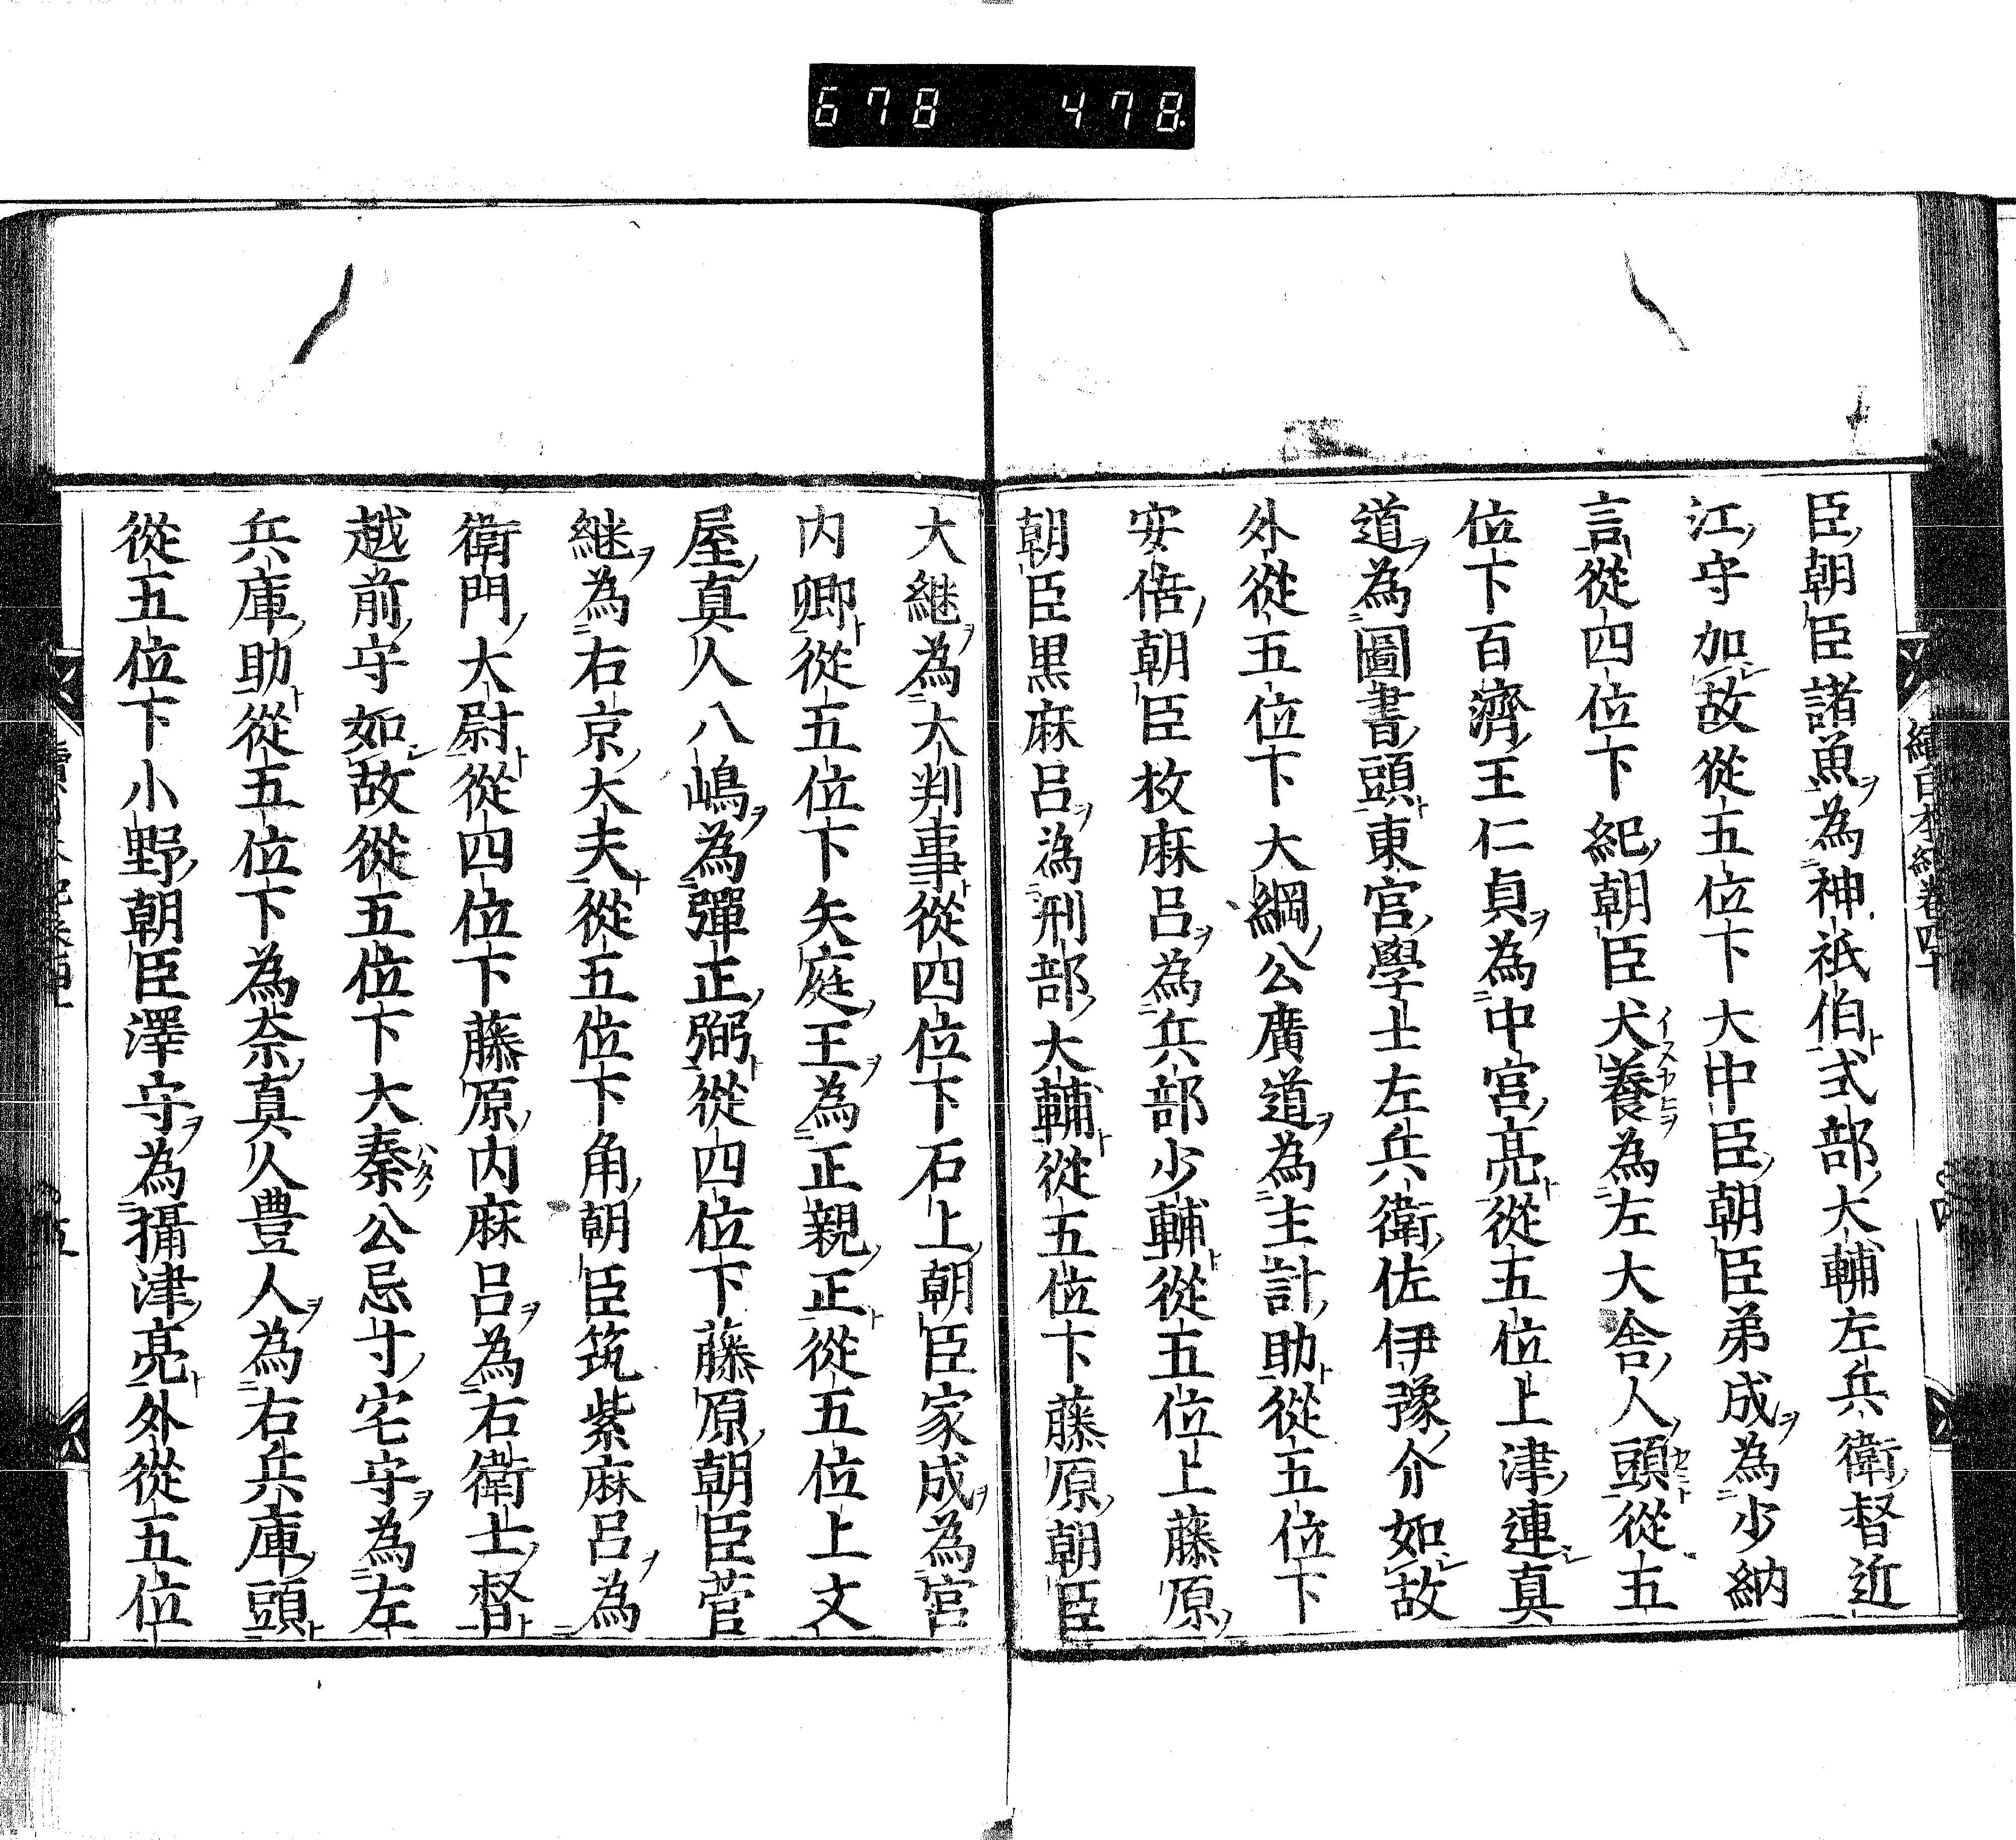 678 478
續日本紀卷四十
臣朝臣諸魚爲神祇伯式部大輔左兵衛督近
江守加故從五位下大中臣朝臣弟成爲少納
言從四位下紀朝臣犬養爲左大舍人頭從五
位下百濟王仁貞爲中宮亮從五位上津連真
道爲圖書頭東宮學士左兵衛佐伊豫介如故
外從五位下大綱公廣道爲主計助從五位下
安倍朝臣枚麻呂爲兵部少輔從五位上藤原
朝臣黒麻呂爲刑部大輔從五位下藤原朝臣
大継爲大判事從四位下石上朝臣家成爲宮
内卿從五位下矢庭王爲正親正從五位上文
屋真人八嶋爲彈正弼從四位下藤原朝臣菅
継爲右京大夫從五位下角朝臣筑紫麻呂爲
衛門大尉從四位下藤原内麻呂爲右衛士督
越前守如故從五位下大秦公忌寸宅守爲左
兵庫助從五位下爲奈真人豊人爲右兵庫頭
從五位下小野朝臣澤守爲攝津亮外從五位